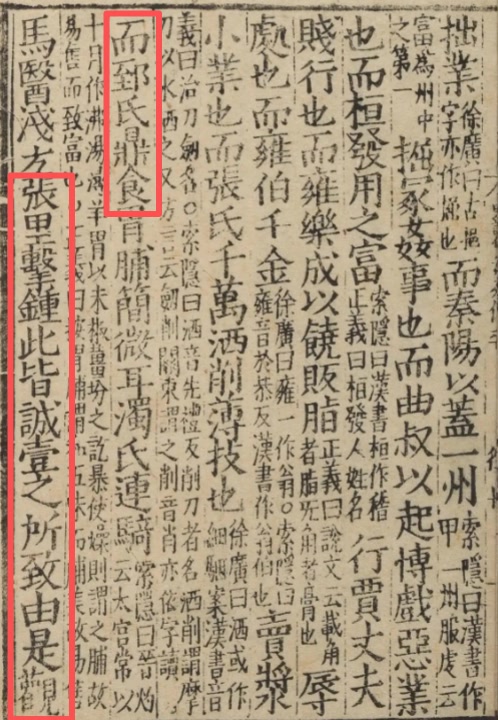 拙業徐廣曰古掘字亦作掘也而秦陽以蓋一州索隱曰漢書作甲一州服虔云
富為州中之第一掘冢姦事也而曲叔以起博戲惡業
也而桓發用之富索隱曰漢書桓作稽正義曰桓發人姓名行賈丈夫
賤行也而雍樂成以饒販脂正義曰說文云戴角者脂旡角者膏也辱
處也而雍伯千金徐廣曰雍一作翁○索隱曰雍音於恭反漢書作翁伯也賣漿
小業也而張氏千萬洒削薄技也徐廣曰洒或作細駰案漢書音
義曰治刀劍名○索隱曰洒音先禮反削刀者名洒削謂摩刀以水洒之又方言云劍削關東謂之削音肖亦依字讀
而郅氏鼎食胃脯簡微耳濁氏連騎索隱曰晉灼云太官常以
十月作沸湯燖羊胃以末椒薑坋之訖暴使燥則謂之脯故易售而致富也○正義曰按胃脯謂和五味而脯美故易售
馬醫淺方張里擊鍾此皆誠壹之所致由是觀